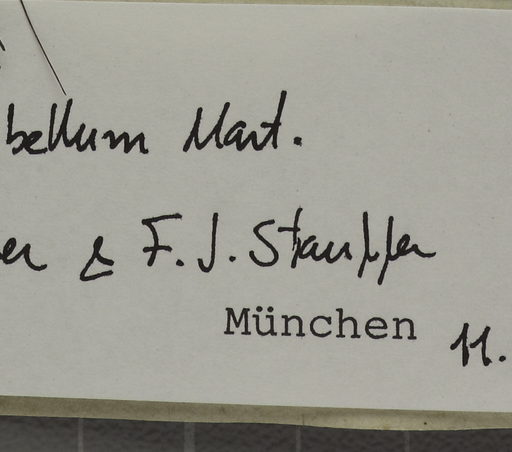 bellum Mart.
er & F. J. Stauffer
München 11.